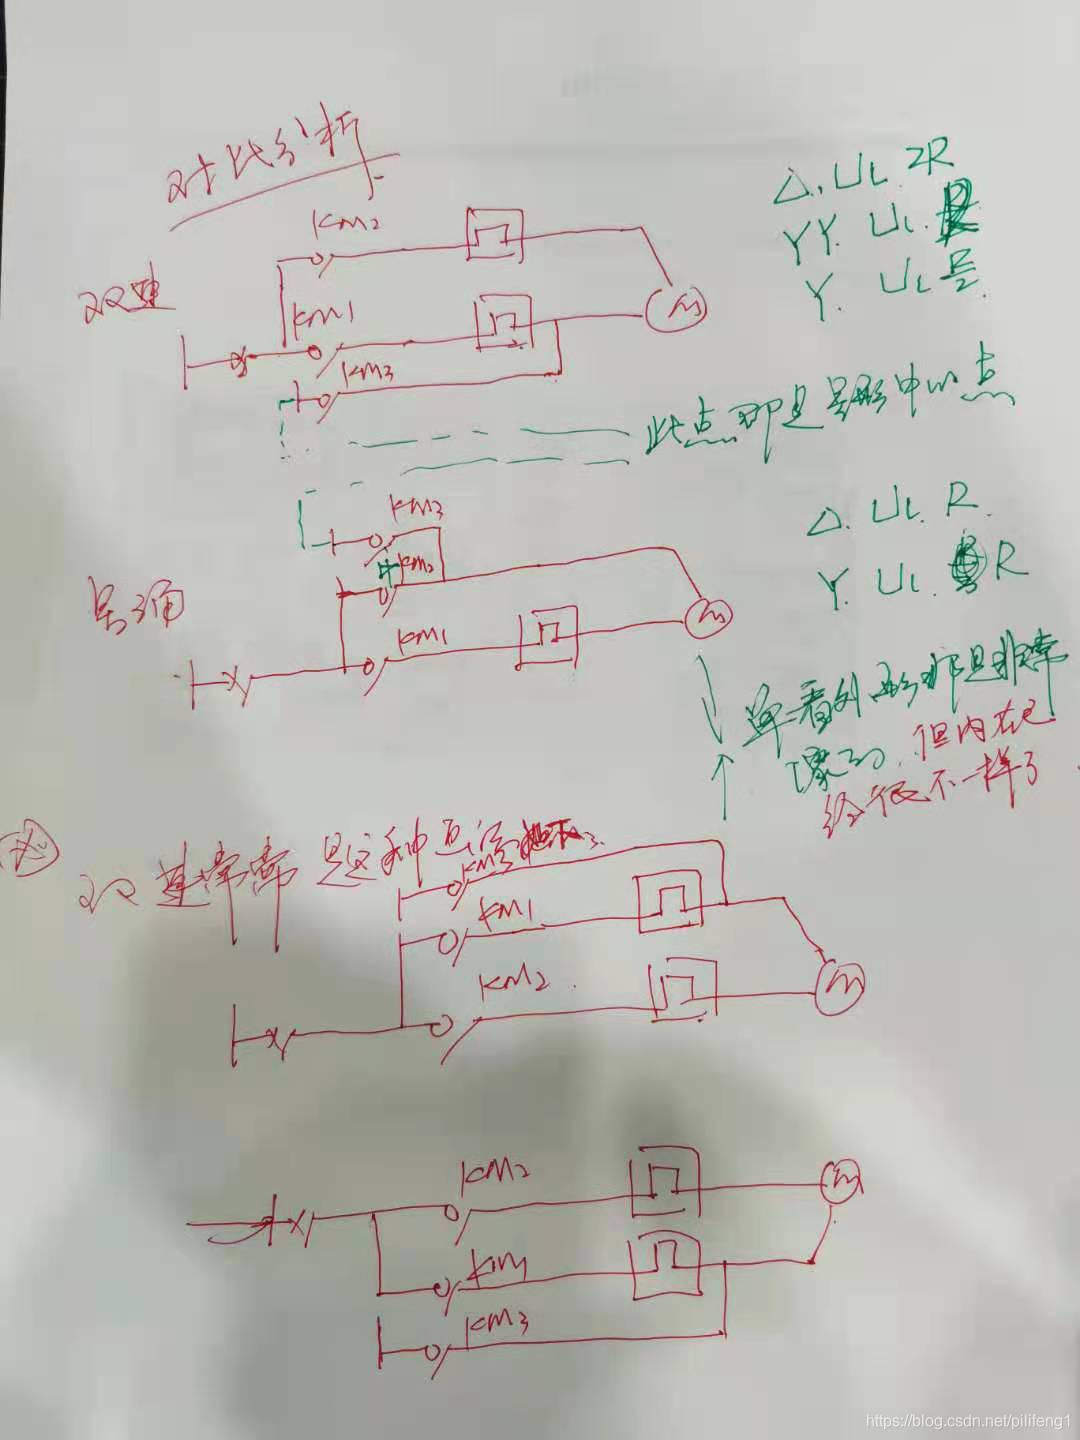 对比分析
KM2
双速
KM1
KM3
△. UL 2R
YY. UL.
Y. UL R/2
此点即是星形中心点
KM3
KM2
星三角
KM1
△. UL R.
Y. UL. R
单看外形都是非常
像的, 但内在已
经很不一样了
双速常常是这种画法
KM3
KM1
KM2
KM2
KM1
KM3
https://blog.csdn.net/pilifeng1